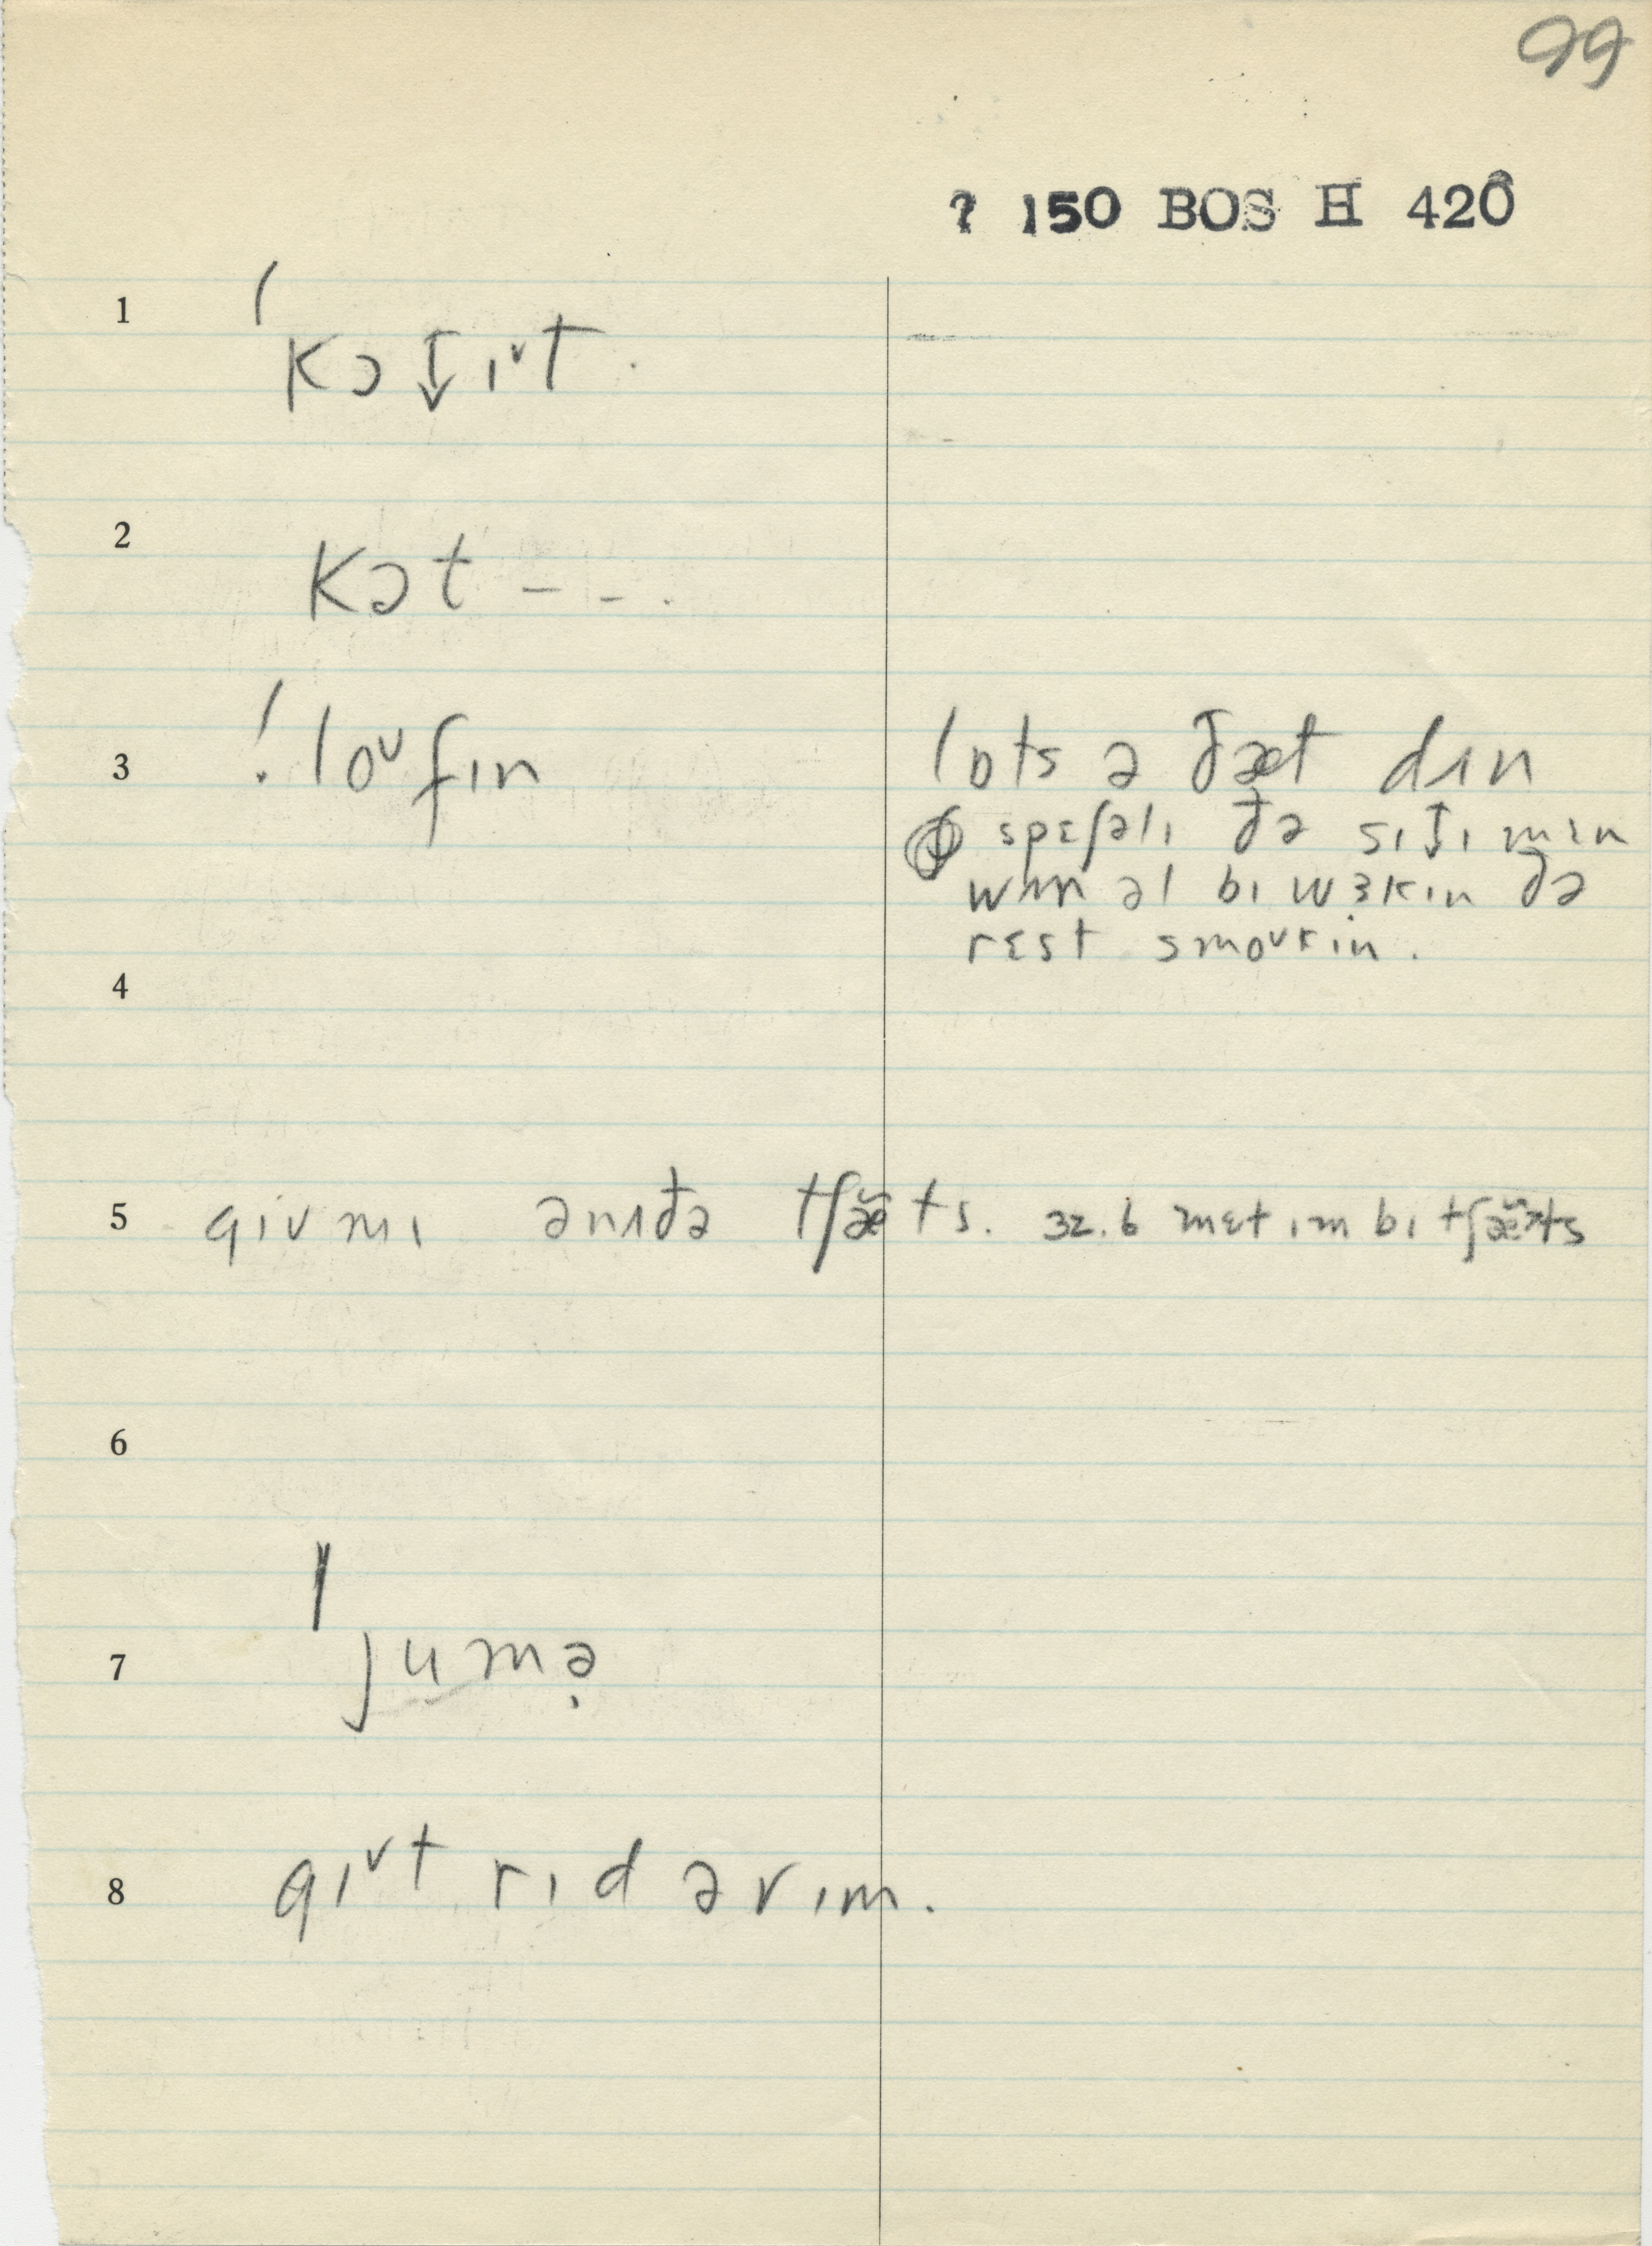 99
? 150 BOS H 420
1 kɔt̬ɪᵛt.
2 kɔt - - .
3 ! loᵛfɪn lɒts ə ðæt dʌn
spɛʃəlɪ ðə sɪt̬ɪ mɛn
wʌn əl bɪ wɜkɪn ðə
rɛst smoᵛkɪn.
4
5 gɪv mɪ ənʌðə tʃæ̆ts. 32.6 mɛt ɪm bɪ tʃæ̆ᵊts
6
7 jumə̣
8 gɪᵛt rɪd əv ɪm.